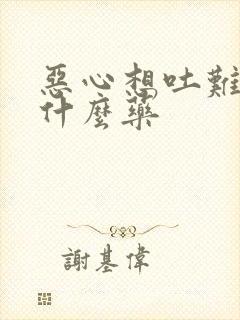 惡心想吐難
什麼藥
謝基偉